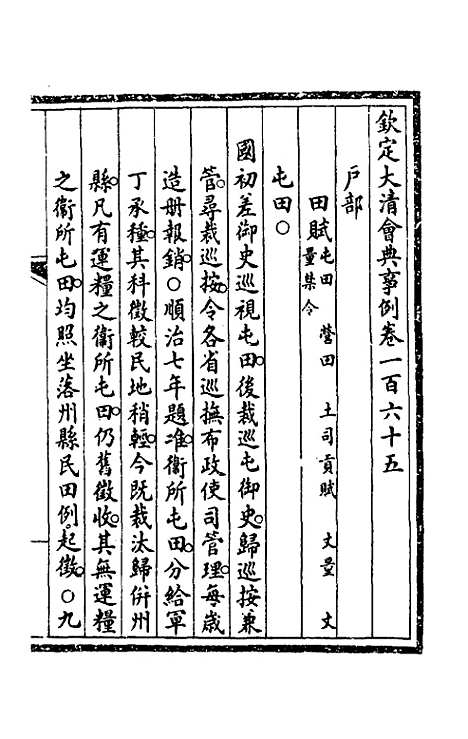 欽定大清會典事例卷一百六十五
戶部
田賦屯田 營田 土司貢賦 丈量 丈量禁令
屯田○
國初差御史巡視屯田。後裁巡屯御史。歸巡按兼
管。尋裁巡按。令各省巡撫布政使司管理。每歲
造册報銷。○順治七年題准。衞所屯田。分給軍
丁承種。其科徵較民地稍輕。今既裁汰歸併州
縣。凡有運糧之衞所屯田。仍舊徵收。其無運糧
之衞所屯田。均照坐落州縣民田例。起徵。○九